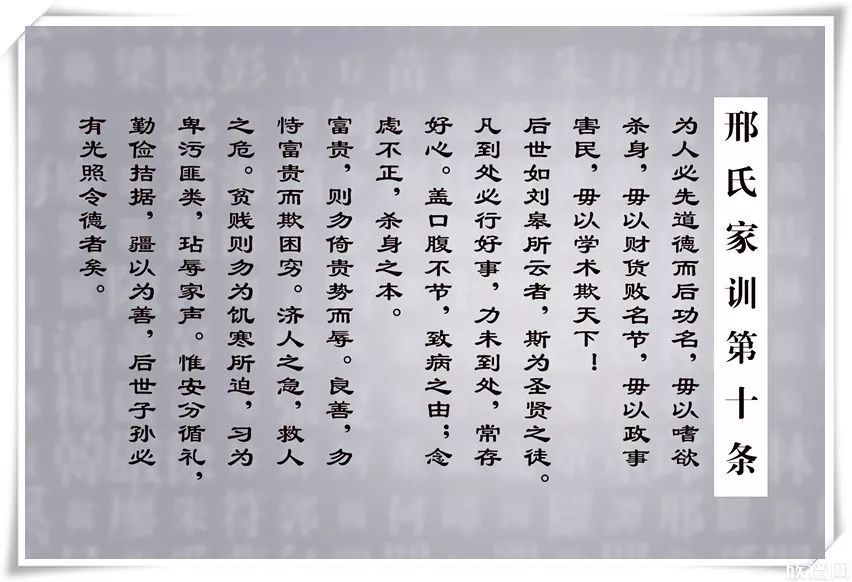 邢氏家训第十条
为人必先道德而后功名，毋以嗜欲
杀身，毋以财货败名节，毋以政事
害民，毋以学术欺天下！
后世如刘皋所云者，斯为圣贤之徒。
凡到处必行好事，力未到处，常存
好心。盖口腹不节，致病之由；念
虑不正，杀身之本。
富贵，则勿倚贵势而辱。良善，勿
恃富贵而欺困穷。济人之急，救人
之危。贫贱则勿为饥寒所迫，习为
卑污匪类，玷辱家声。惟安分循礼，
勤俭拮据，疆以为善，后世子孙必
有光照令德者矣。
族谱网